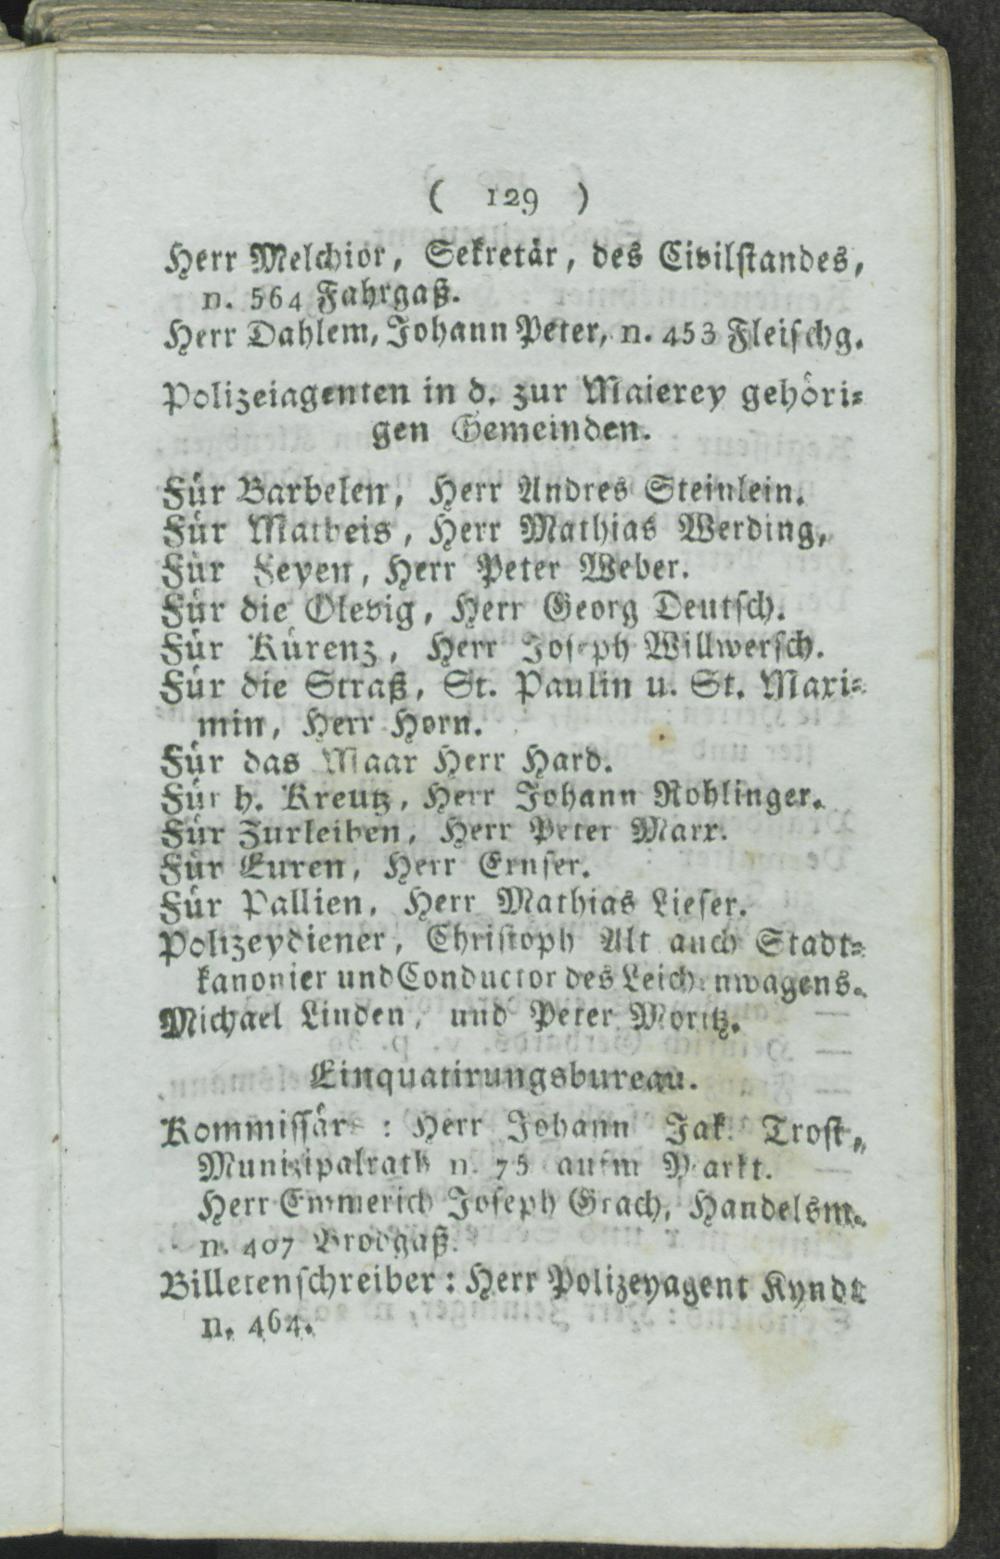 ( 129 )
Herr Melchior, Sekretär, des Civilstandes,
n. 564 Fahrgaß.
Herr Dahlem, Johann Peter, n. 453 Fleischg.
Polizeiagenten in d. zur Maierey gehöri-
gen Gemeinden.
Für Barbelen, Herr Andres Steinlein.
Für Matheis, Herr Mathias Werding,
Für Feyen, Herr Peter Weber.
Für die Olevig, Herr Georg Deutsch.
Für Kürenz, Herr Joseph Willwersch.
Für die Straß, St. Paulin u. St. Maxi-
min, Herr Horn.
Für das Maar Herr Hard.
Für h. Kreutz, Herr Johann Rohlinger.
Für Zurleiben, Herr Peter Marx.
Für Euren, Herr Ernser.
Für Pallien, Herr Mathias Lieser.
Polizeydiener, Christoph Alt auch Stadt-
kanonier und Conductor des Leichenwagens.
Michael Linden, und Peter Moritz.
Einquatirungsbureau.
Kommissär : Herr Johann Jak. Trost,
Munizipalrath n. 75 aufm Markt.
Herr Emmerich Joseph Grach, Handelsm.
n. 407 Brodgaß.
Billetenschreiber : Herr Polizeyagent Kyndt
n. 464.